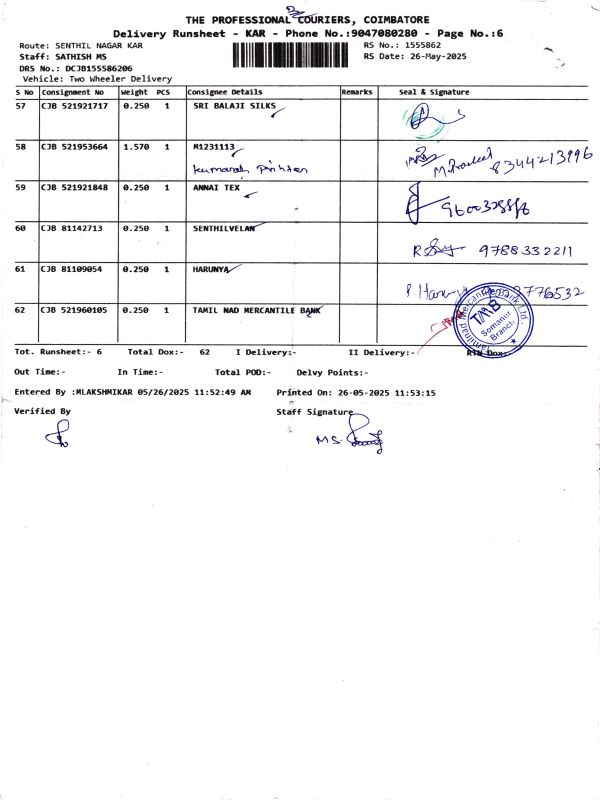 THE PROFESSIONAL COURIERS, COIMBATORE
Delivery Runsheet - KAR - Phone No.:9047080280 - Page No.:6
Route: SENTHIL NAGAR KAR
RS No.: 1555862
Staff: SATHISH MS
RS Date: 26-May-2025
DRS No.: DCJB155586206
Vehicle: Two Wheeler Delivery
S No Consignment No Weight PCS Consignee Details Remarks Seal & Signature
57 CJB 521921717 0.250 1 SRI BALAJI SILKS
58 CJB 521953664 1.570 1 M1231113
8344213996
59 CJB 521921848 0.250 1 ANNAI TEX
60 CJB 81142713 0.250 1 SENTHILVELAN
9788332211
61 CJB 81109054 0.250 1 HARUNYA
62 CJB 521960105 0.250 1 TAMIL NAD MERCANTILE BANK
Tamilnad Mercantile Bank Ltd.
TMB
Somanur
Branch
Tot. Runsheet:- 6 Total Dox:- 62 I Delivery:- II Delivery:- RTN Dox:-
Out Time:- In Time:- Total POD:- Delvy Points:-
Entered By :MLAKSHMIKAR 05/26/2025 11:52:49 AM Printed On: 26-05-2025 11:53:15
Verified By Staff Signature
M.S.